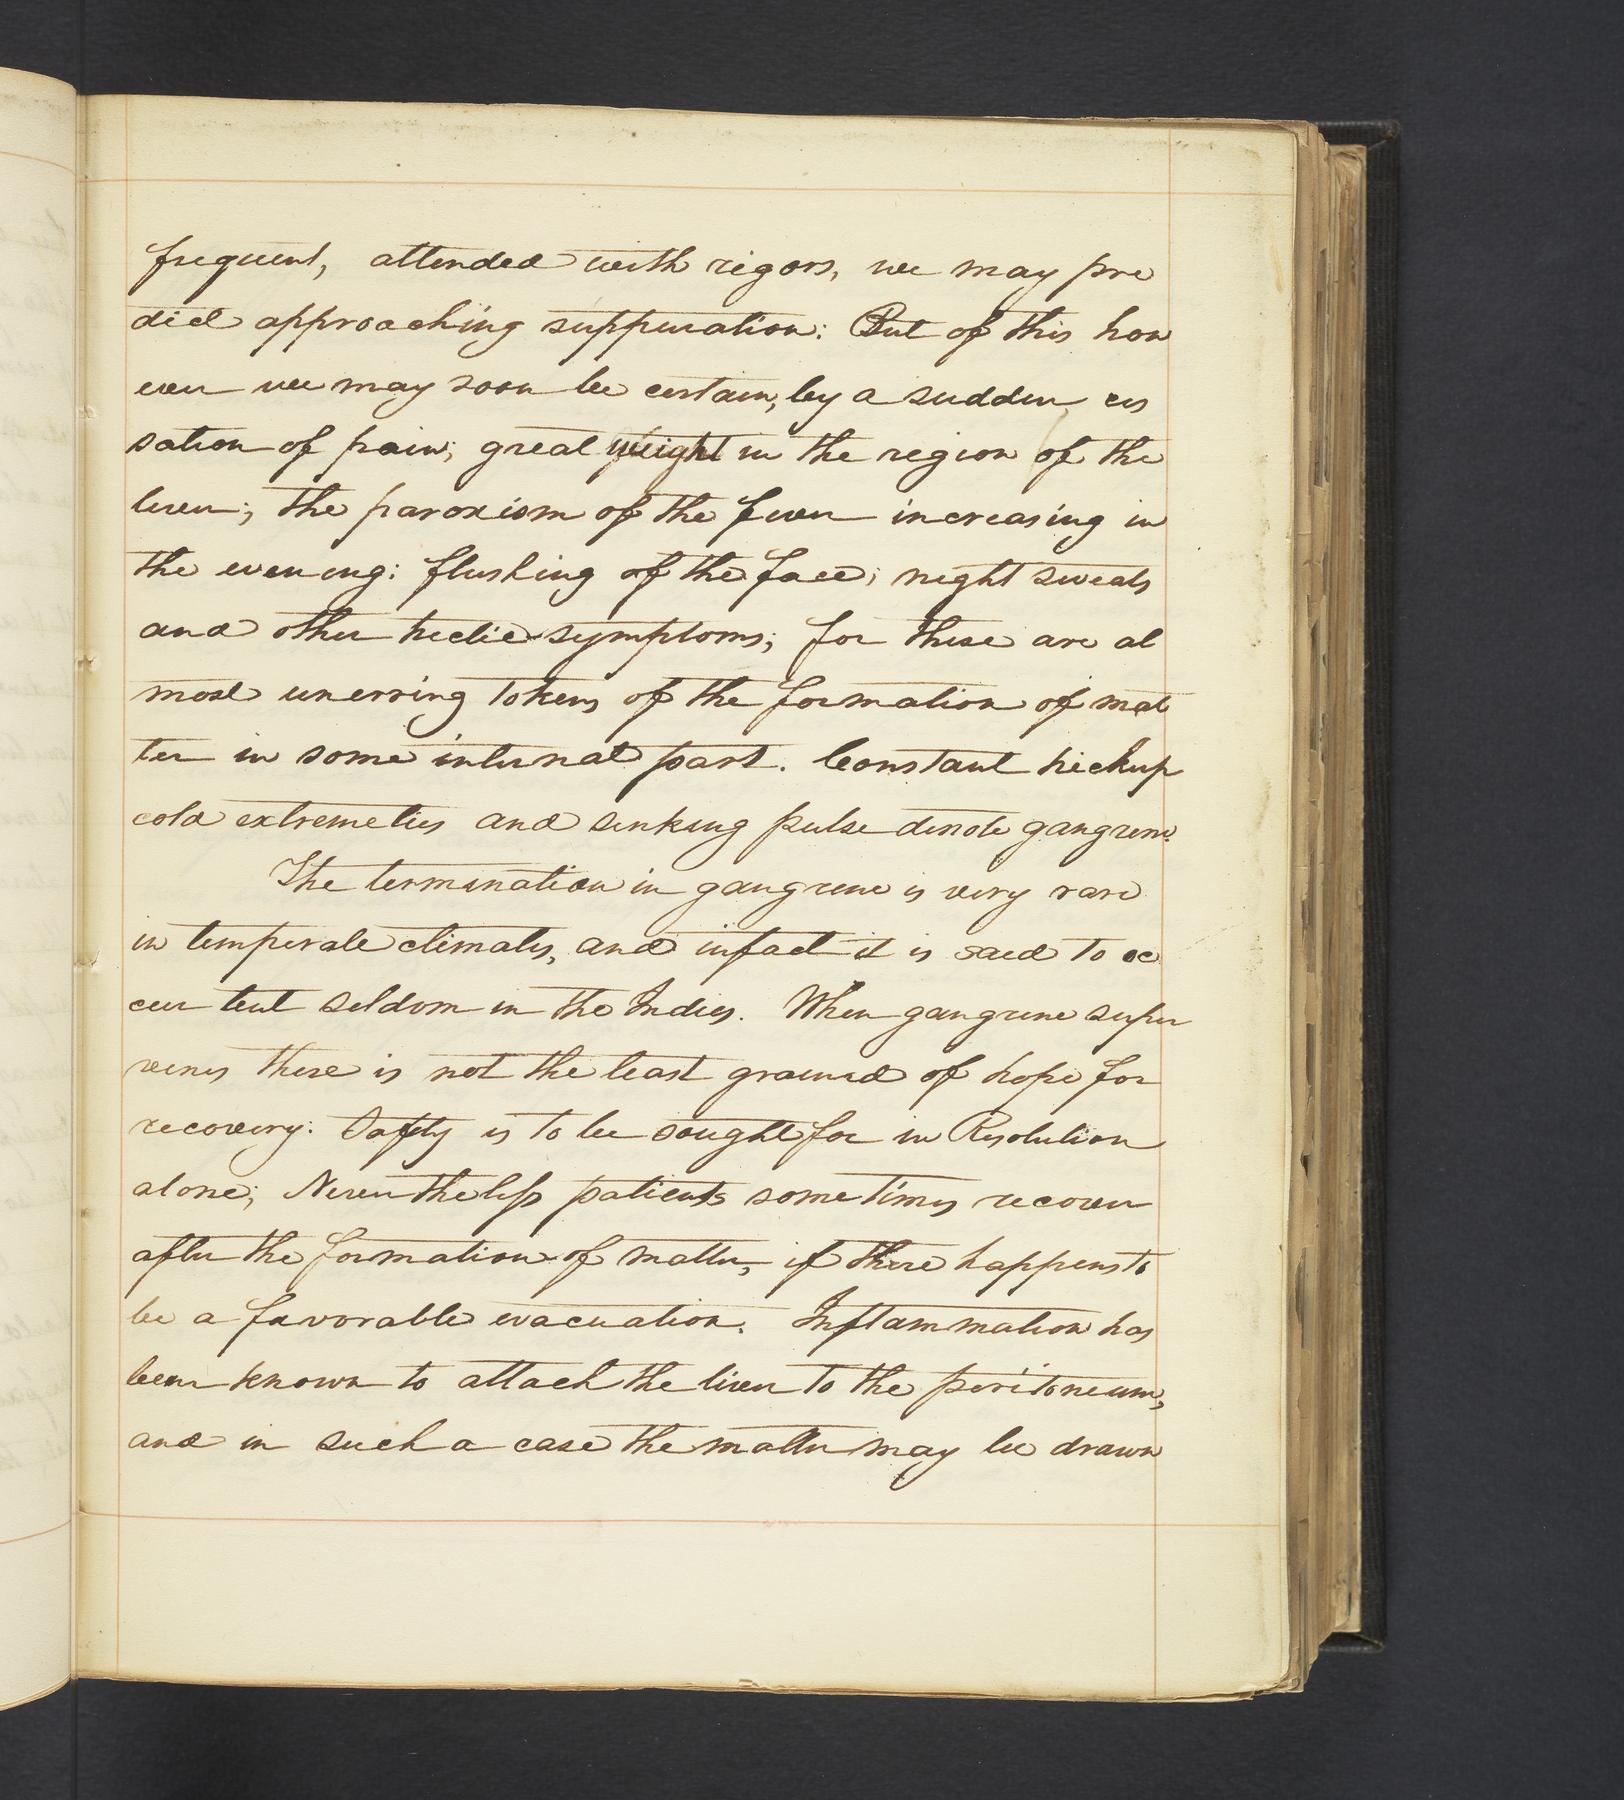 frequent, attended with rigors, we may pre
dict approaching suppuration: But of this how
ever we may soon be certain, by a sudden ces
sation of pain; great weight in the region of the
liver; the paroxism of the fever increasing in
the evening: flushing of the face; night sweats
and other hectic symptoms; for these are al
most unerring tokens of the formation of mat
ter in some internal part. Constant hickup
cold extremeties and sinking pulse denote gangrene.
The termination in gangrene is very rare
in temperate climates, and infact it is said to oc
cur but seldom in the Indies. When gangrene super
venes there is not the least ground of hope for
recovery: Safty is to be sought for in Resolution
alone; Nevertheless patients sometimes recover
after the formation of matter, if there happens to
be a favorable evacuation. Inflammation has
been known to attach the liver to the peritoneum,
and in such a case the matter may be drawn